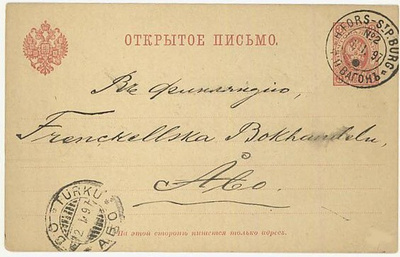 ОТКРЫТОЕ ПИСЬМО.
H:FORS-ST.P.BURG
No2
97
П. ВАГОНЪ
Въ Финляндію,
Frenckellska Bokhandeln
Åbo.
TURKU
97
ÅBO
АБО
На этой сторонѣ пишется только адресъ.